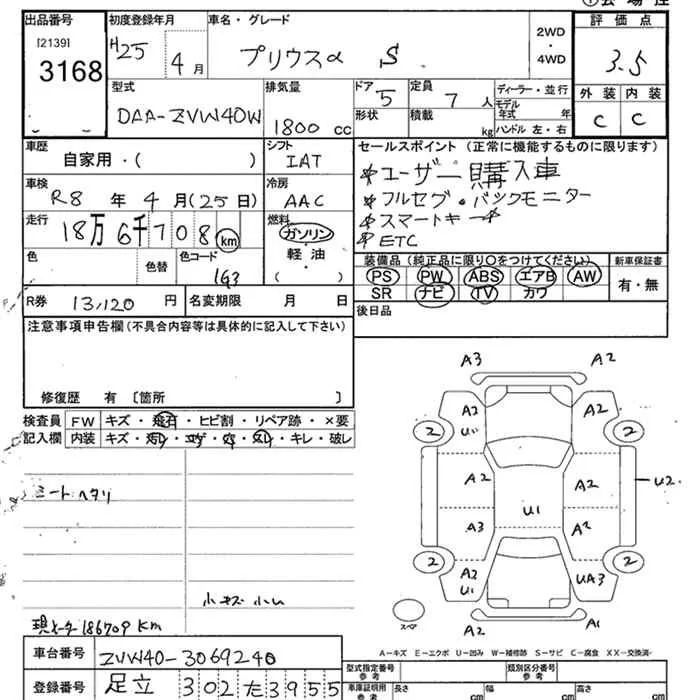 出品番号 初度登録年月 車名・グレード 2WD・4WD 評価点
[2139] 3168 H25年 4月 プリウスα S 3.5
型式 排気量 ドア 5 定員 7人 ディーラー・並行 外装 内装
DAA-ZVW40W 1800cc 形状 積載 kg モデル年式 年 ハンドル 左・右 C C
車歴 シフト セールスポイント(正常に機能するものに限ります)
自家用・( ) IAT ユーザー購入車
車検 冷房 フルセグ・バックモニター
R8年4月(25日) AAC スマートキー
走行 燃料 ETC
18万6千708km ガソリン
色 色替 色コード 1G3 軽油 ( )
装備品(純正品に限り○をつけてください) 新車保証書
PS PW ABS エアB AW 有・無
SR ナビ TV カワ
R券 13,120円 名変期限 月 日 後日品
注意事項申告欄(不具合内容等は具体的に記入して下さい)
修復歴 有 〔箇所 〕
検査員 FW キズ・飛石・ヒビ割・リペア跡・×要
記入欄 内装 キズ・汚レ・コゲ・穴・スレ・キレ・破レ
シートヘタリ
小キズ 小U
現メーター186709Km
A3 A2
A2 A2
2 U 2
A2 A2 U2
U1
A3 A2
2 A2 U1 UA3 2
スペア A2 A1
A―キズ E―エクボ U―凹み W―補修跡 S―サビ C―腐食 XX―交換済
車台番号 ZVW40-3069240
登録番号 足立 302た3955
型式指定番号 参考 類別区分番号 参考
車庫証明用 参考 長さ cm 幅 cm 高さ cm